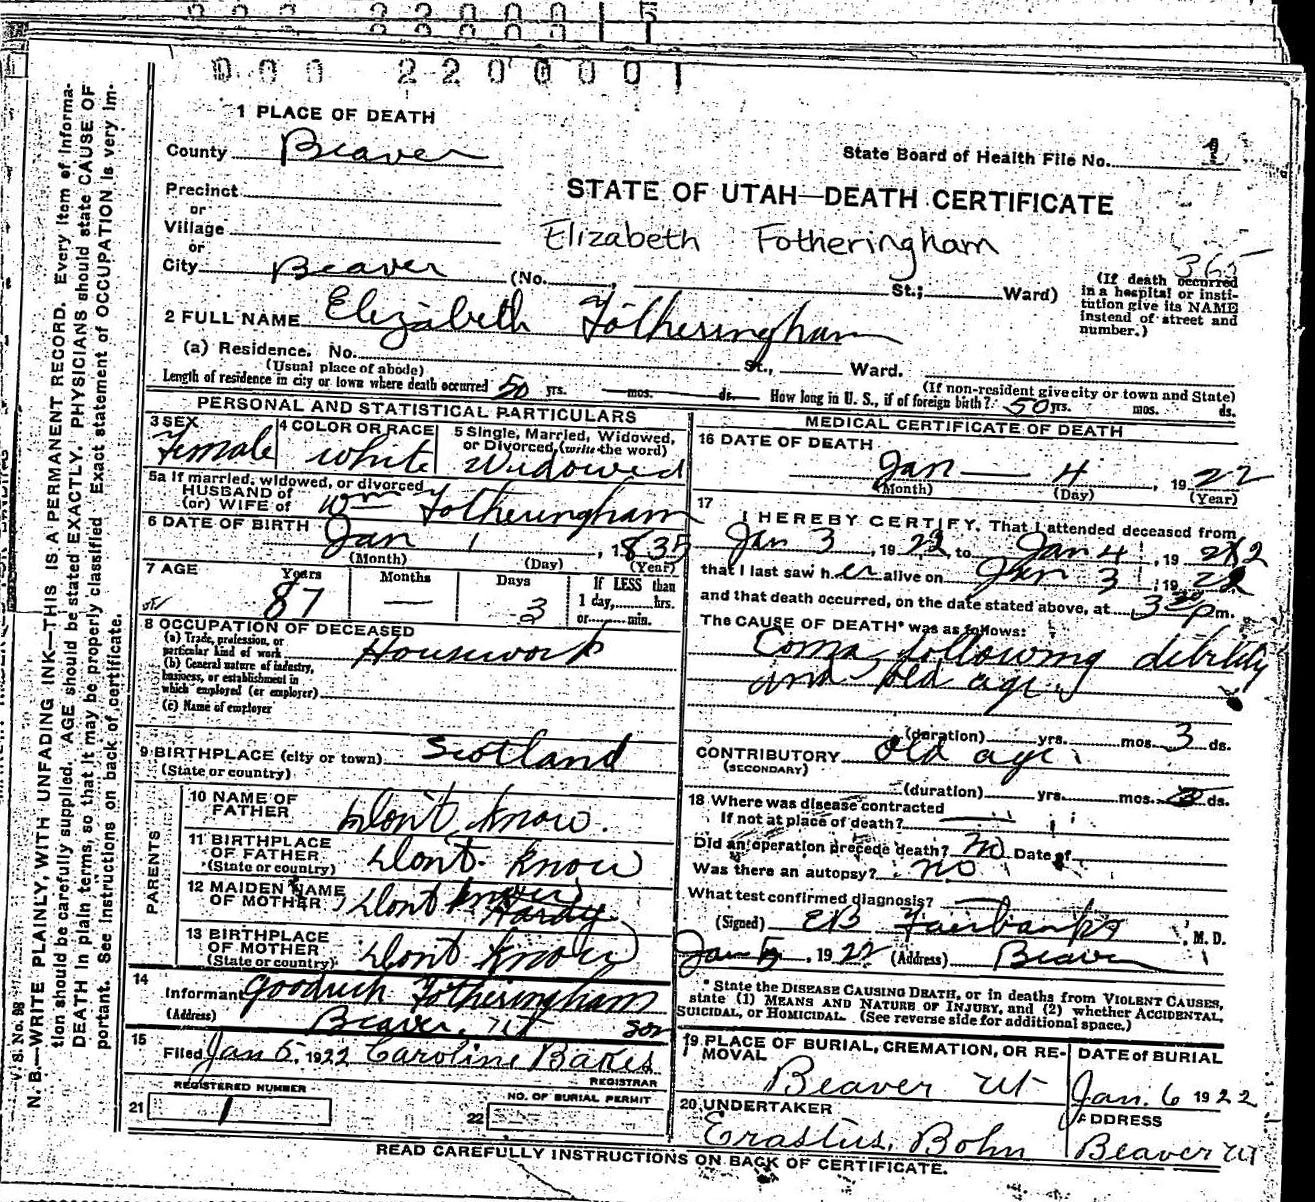 000 2200001
1 PLACE OF DEATH
County Beaver
State Board of Health File No. 1
Precinct
or
Village
or
City Beaver (No. , St.; Ward)
STATE OF UTAH—DEATH CERTIFICATE
Elizabeth Fotheringham
365
(If death occurred
in a hospital or insti-
tution give its NAME
instead of street and
number.)
2 FULL NAME Elizabeth Fotheringham
(a) Residence. No. St., Ward.
(Usual place of abode)
(If non-resident give city or town and State)
Length of residence in city or town where death occurred 50 yrs. mos. ds. How long in U. S., if of foreign birth? 50 yrs. mos. ds.
PERSONAL AND STATISTICAL PARTICULARS
3 SEX
Female
4 COLOR OR RACE
white
5 Single, Married, Widowed,
or Divorced, (write the word)
Widowed
5a If married, widowed, or divorced
HUSBAND of
(or) WIFE of Wm Fotheringham
6 DATE OF BIRTH Jan 1, 1835
(Month) (Day) (Year)
7 AGE Years Months Days If LESS than
87 — 3 1 day, hrs.
or min.
8 OCCUPATION OF DECEASED
(a) Trade, profession, or
particular kind of work Housework
(b) General nature of industry,
business, or establishment in
which employed (or employer)
(c) Name of employer
9 BIRTHPLACE (city or town) Scotland
(State or country)
PARENTS
10 NAME OF
FATHER Don't know.
11 BIRTHPLACE
OF FATHER Don't know
(State or country)
12 MAIDEN NAME
OF MOTHER Don't know
Hardy
13 BIRTHPLACE
OF MOTHER Don't know
(State or country)
14
Informant Goodrich Fotheringham
(Address) Beaver, Ut son
15
Filed Jan 5, 1922 Caroline Bakes
REGISTRAR
REGISTERED NUMBER
21 1
NO. OF BURIAL PERMIT
22
MEDICAL CERTIFICATE OF DEATH
16 DATE OF DEATH
Jan — 4, 1922
(Month) (Day) (Year)
17
I HEREBY CERTIFY, That I attended deceased from
Jan 3, 1922, to Jan 4, 1922
that I last saw her alive on Jan 3, 1922
and that death occurred, on the date stated above, at 3 30 pm.
The CAUSE OF DEATH* was as follows:
Coma, following debility
and old age.
(duration) yrs. mos. 3 ds.
CONTRIBUTORY old age.
(SECONDARY)
(duration) yrs. mos. ds.
18 Where was disease contracted
If not at place of death?
Did an operation precede death? No Date of
Was there an autopsy? no
What test confirmed diagnosis?
(Signed) EB Fairbanks, M. D.
Jan 5, 1922 (Address) Beaver
* State the DISEASE CAUSING DEATH, or in deaths from VIOLENT CAUSES,
state (1) MEANS AND NATURE OF INJURY, and (2) whether ACCIDENTAL,
SUICIDAL, or HOMICIDAL. (See reverse side for additional space.)
19 PLACE OF BURIAL, CREMATION, OR RE-
MOVAL
Beaver Ut
DATE of BURIAL
Jan. 6 1922
20 UNDERTAKER
Erastus. Bohn
ADDRESS
Beaver Ut
READ CAREFULLY INSTRUCTIONS ON BACK OF CERTIFICATE.
V. S. No. 98
N. B.—WRITE PLAINLY, WITH UNFADING INK—THIS IS A PERMANENT RECORD. Every item of informa-
tion should be carefully supplied. AGE should be stated EXACTLY. PHYSICIANS should state CAUSE OF
DEATH in plain terms, so that it may be properly classified. Exact statement of OCCUPATION is very im-
portant. See instructions on back of certificate.